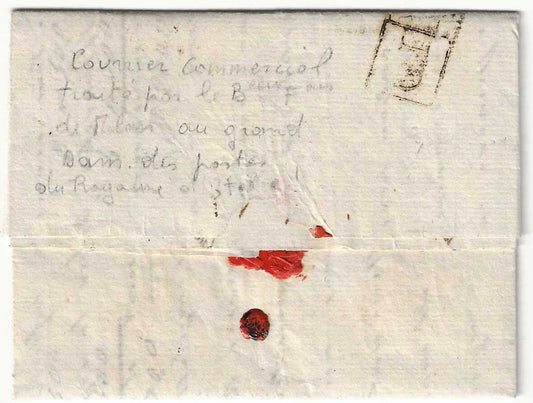 Courrier Commercial
traité par le B
de Milan au grand
Dam. des postes
du Royaume d'Italie !